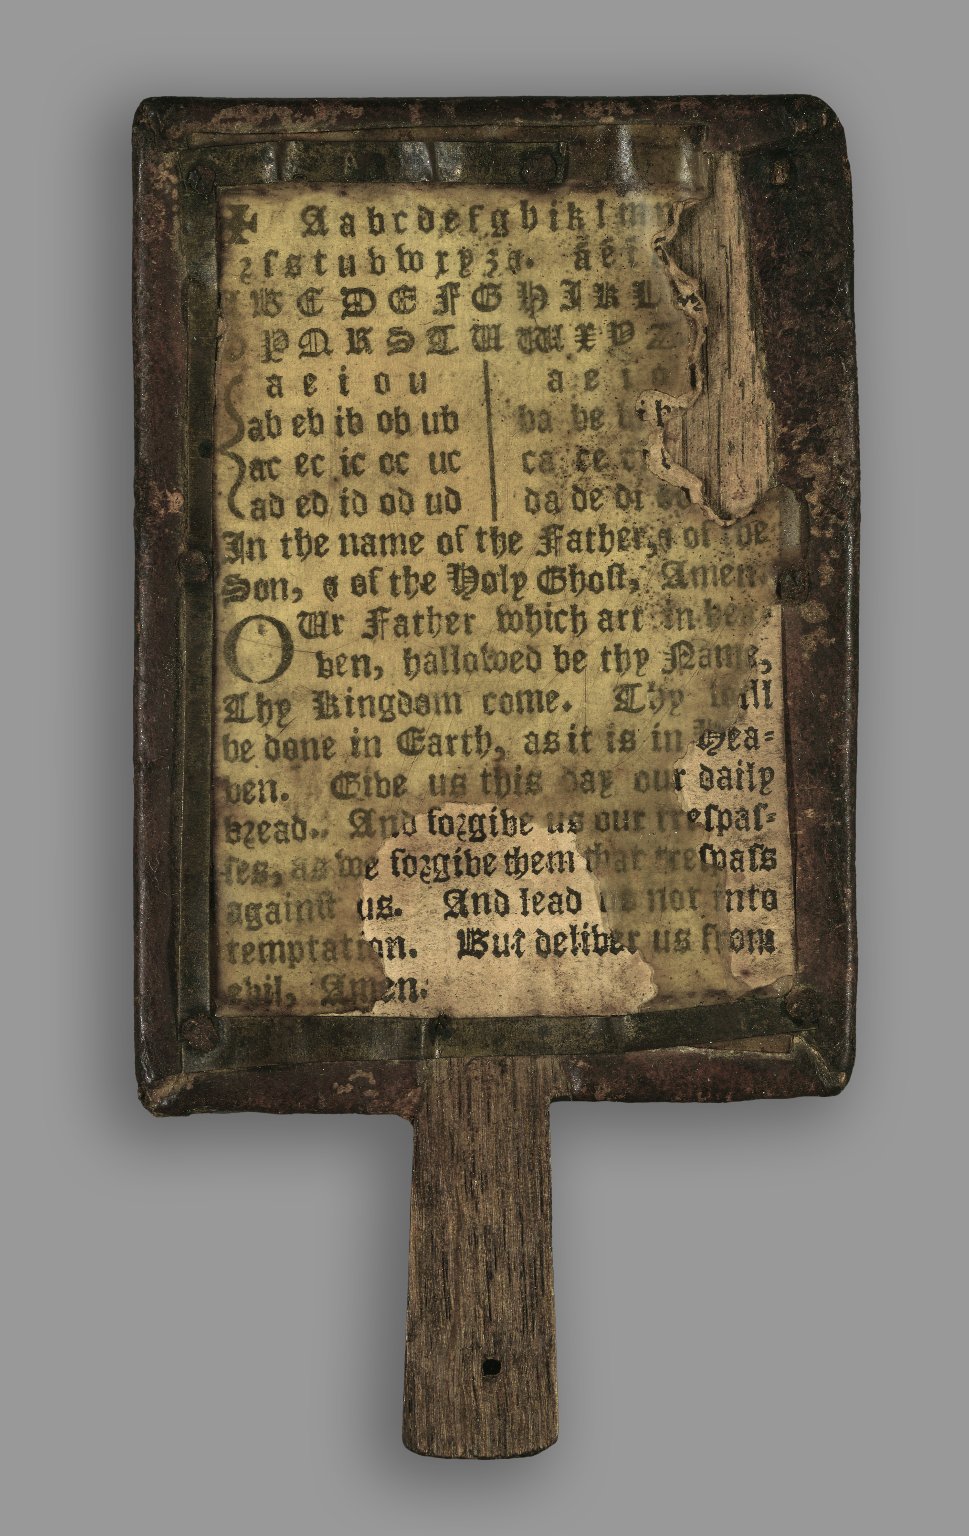 ✠ A a b c d e f g h i k l m n
ꝛ ſ s t u v w x y z &. a e i
B C D E F G H I K L
P Q R S T U W X Y Z
a e i o u a e i o
ab eb ib ob ub ba be bi b
ac ec ic oc uc ca ce ci
ad ed id od ud da de di do
In the name of the Father, & of the
Son, & of the Holy Ghoſt, Amen.
OUr Father which art in Hea-
ven, hallowed be thy Name,
Thy Kingdom come. Thy will
be done in Earth, as it is in Hea-
ven. Give us this day our daily
bꝛead. And foꝛgive us our treſpaſ-
ſes, as we foꝛgive them that treſpaſs
againſt us. And lead us not into
temptation. But deliver us from
evil, Amen.